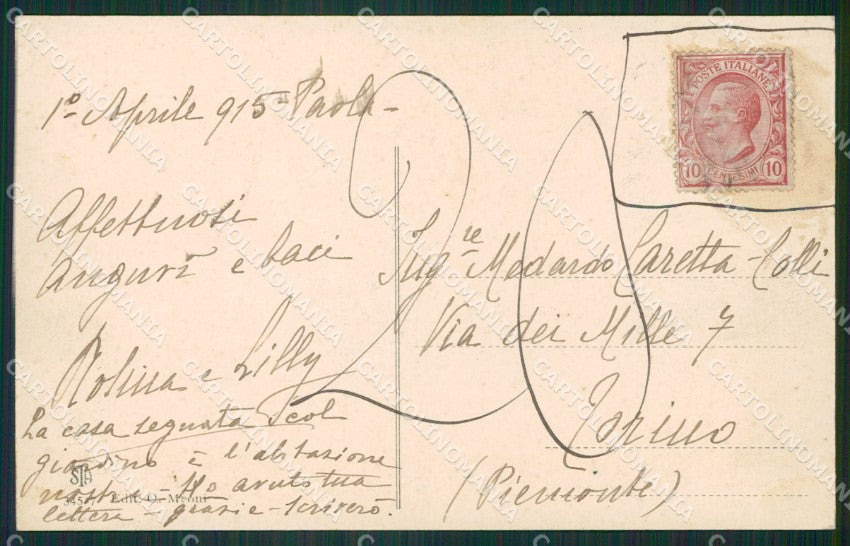 1º Aprile 915 - Paola -
Affettuosi
auguri e baci
Rosina e Lilly
La casa segnata col
giardino è l'abitazione
nostra - Ho avuto tua
lettera - grazie - scriverò.
Ing.re Medardo Caretta-Colli
Via dei Mille 7
Torino
(Piemonte)
20
POSTE ITALIANE
10 CENTESIMI 10
STA
Edit. O. Meoni
CARTOLINOMANIA